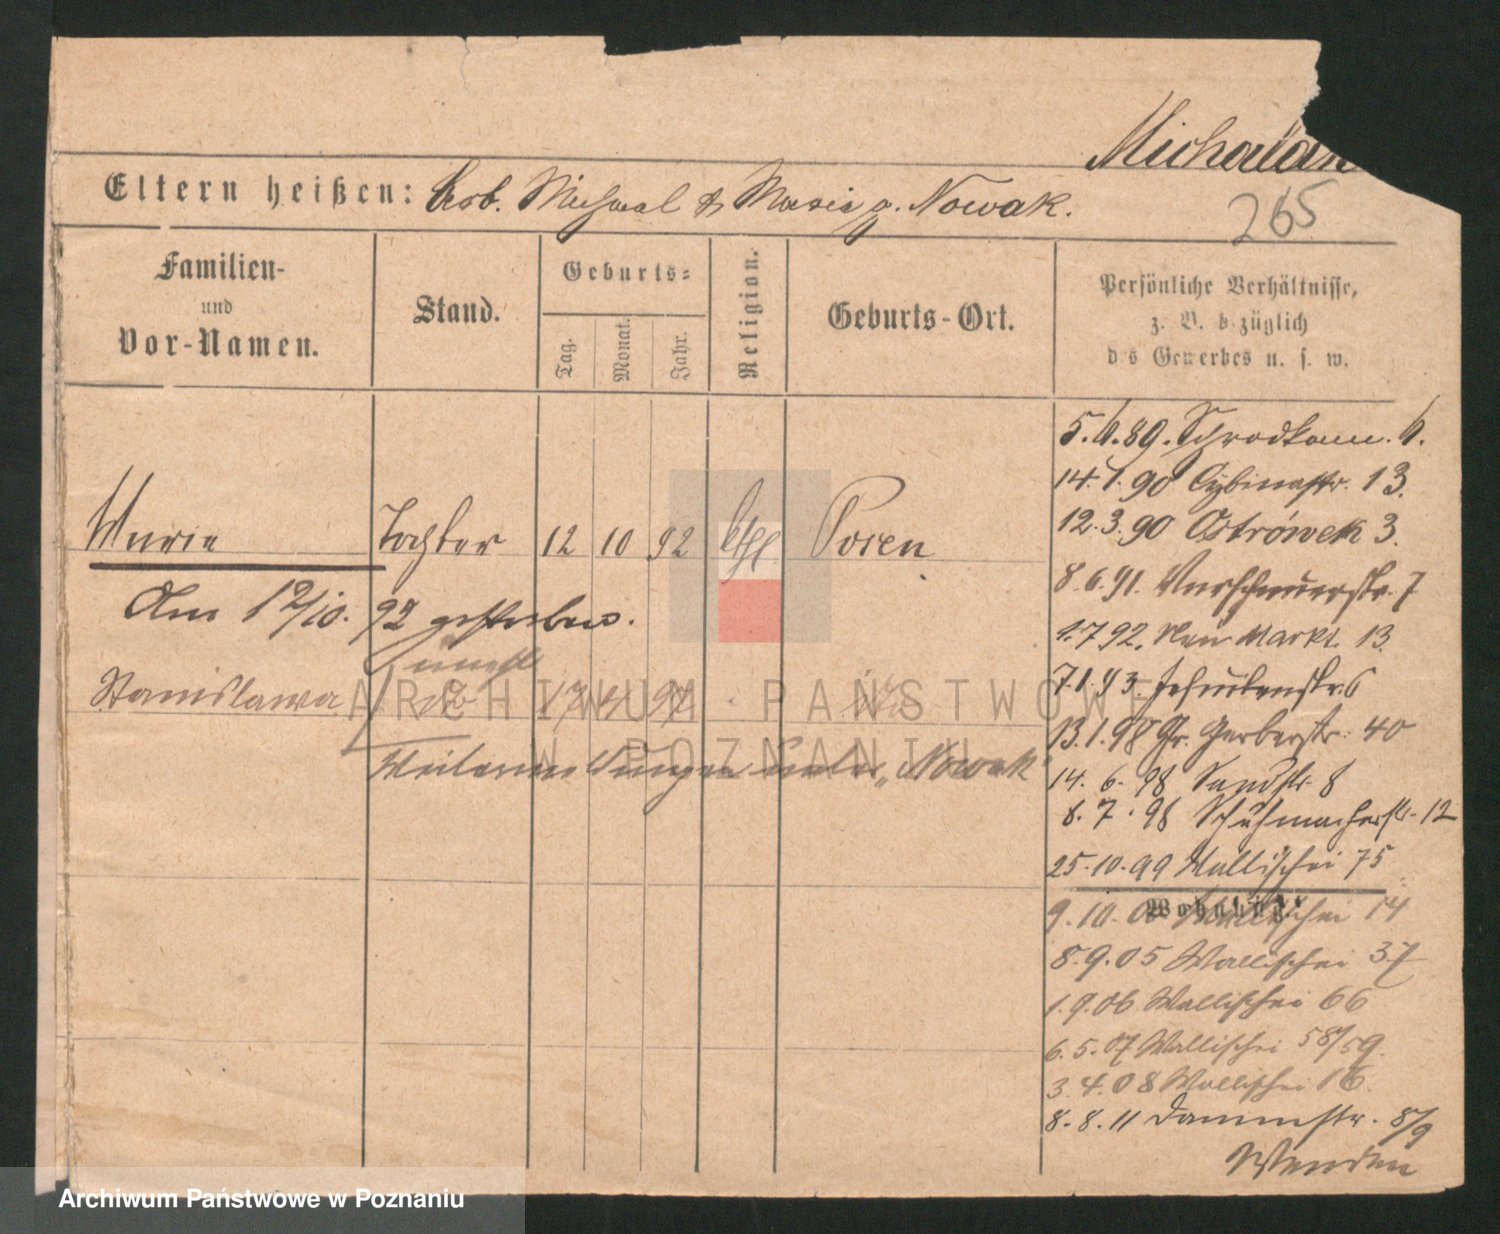 Eltern heißen: Arb. Michael & Marie g. Nowak.
265
Familien- und Vor-Namen.
Stand.
Geburts-
Tag.
Monat.
Jahr.
Religion.
Geburts-Ort.
Persönliche Verhältnisse,
z. B. bezüglich
des Gewerbes u. s. w.
5.6.89. Schrodkam. 6.
14.1.90 Cybinastr. 13.
12.3.90 Ostrówek 3.
Marie Tochter 12 10 92 kth Posen
8.6.91. 7
Am 12/10. 92 gestorben.
1.7.92. Neu Markt 13.
Stanislawa 17 4 97
7.1.93. 6
13.1.98 Gr. Gerberstr. 40
Nowak"
14. 6. 98 Sandstr. 8
8. 7. 98 Schuhmacherstr. 12
25.10.99 Wallischei 75
Wohnung.
9.10. Wallischei 14
8.9.05 Wallischei 37
1.9.06 Wallischei 66
6.5.07 Wallischei 58/59.
3.4.08 Wallischei 16.
8.8.11 Dammstr. 8/9
ARCHIWUM PAŃSTWOWE
W POZNANIU
Archiwum Państwowe w Poznaniu